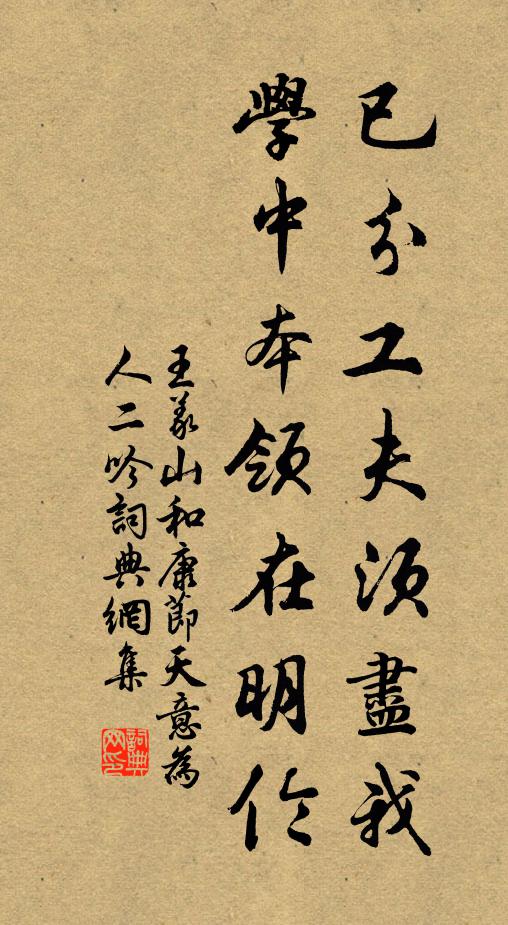 已分工夫須盡我
學中本領在明倫
王義山和康節天意為
人二吟詞典網集
詞典網印